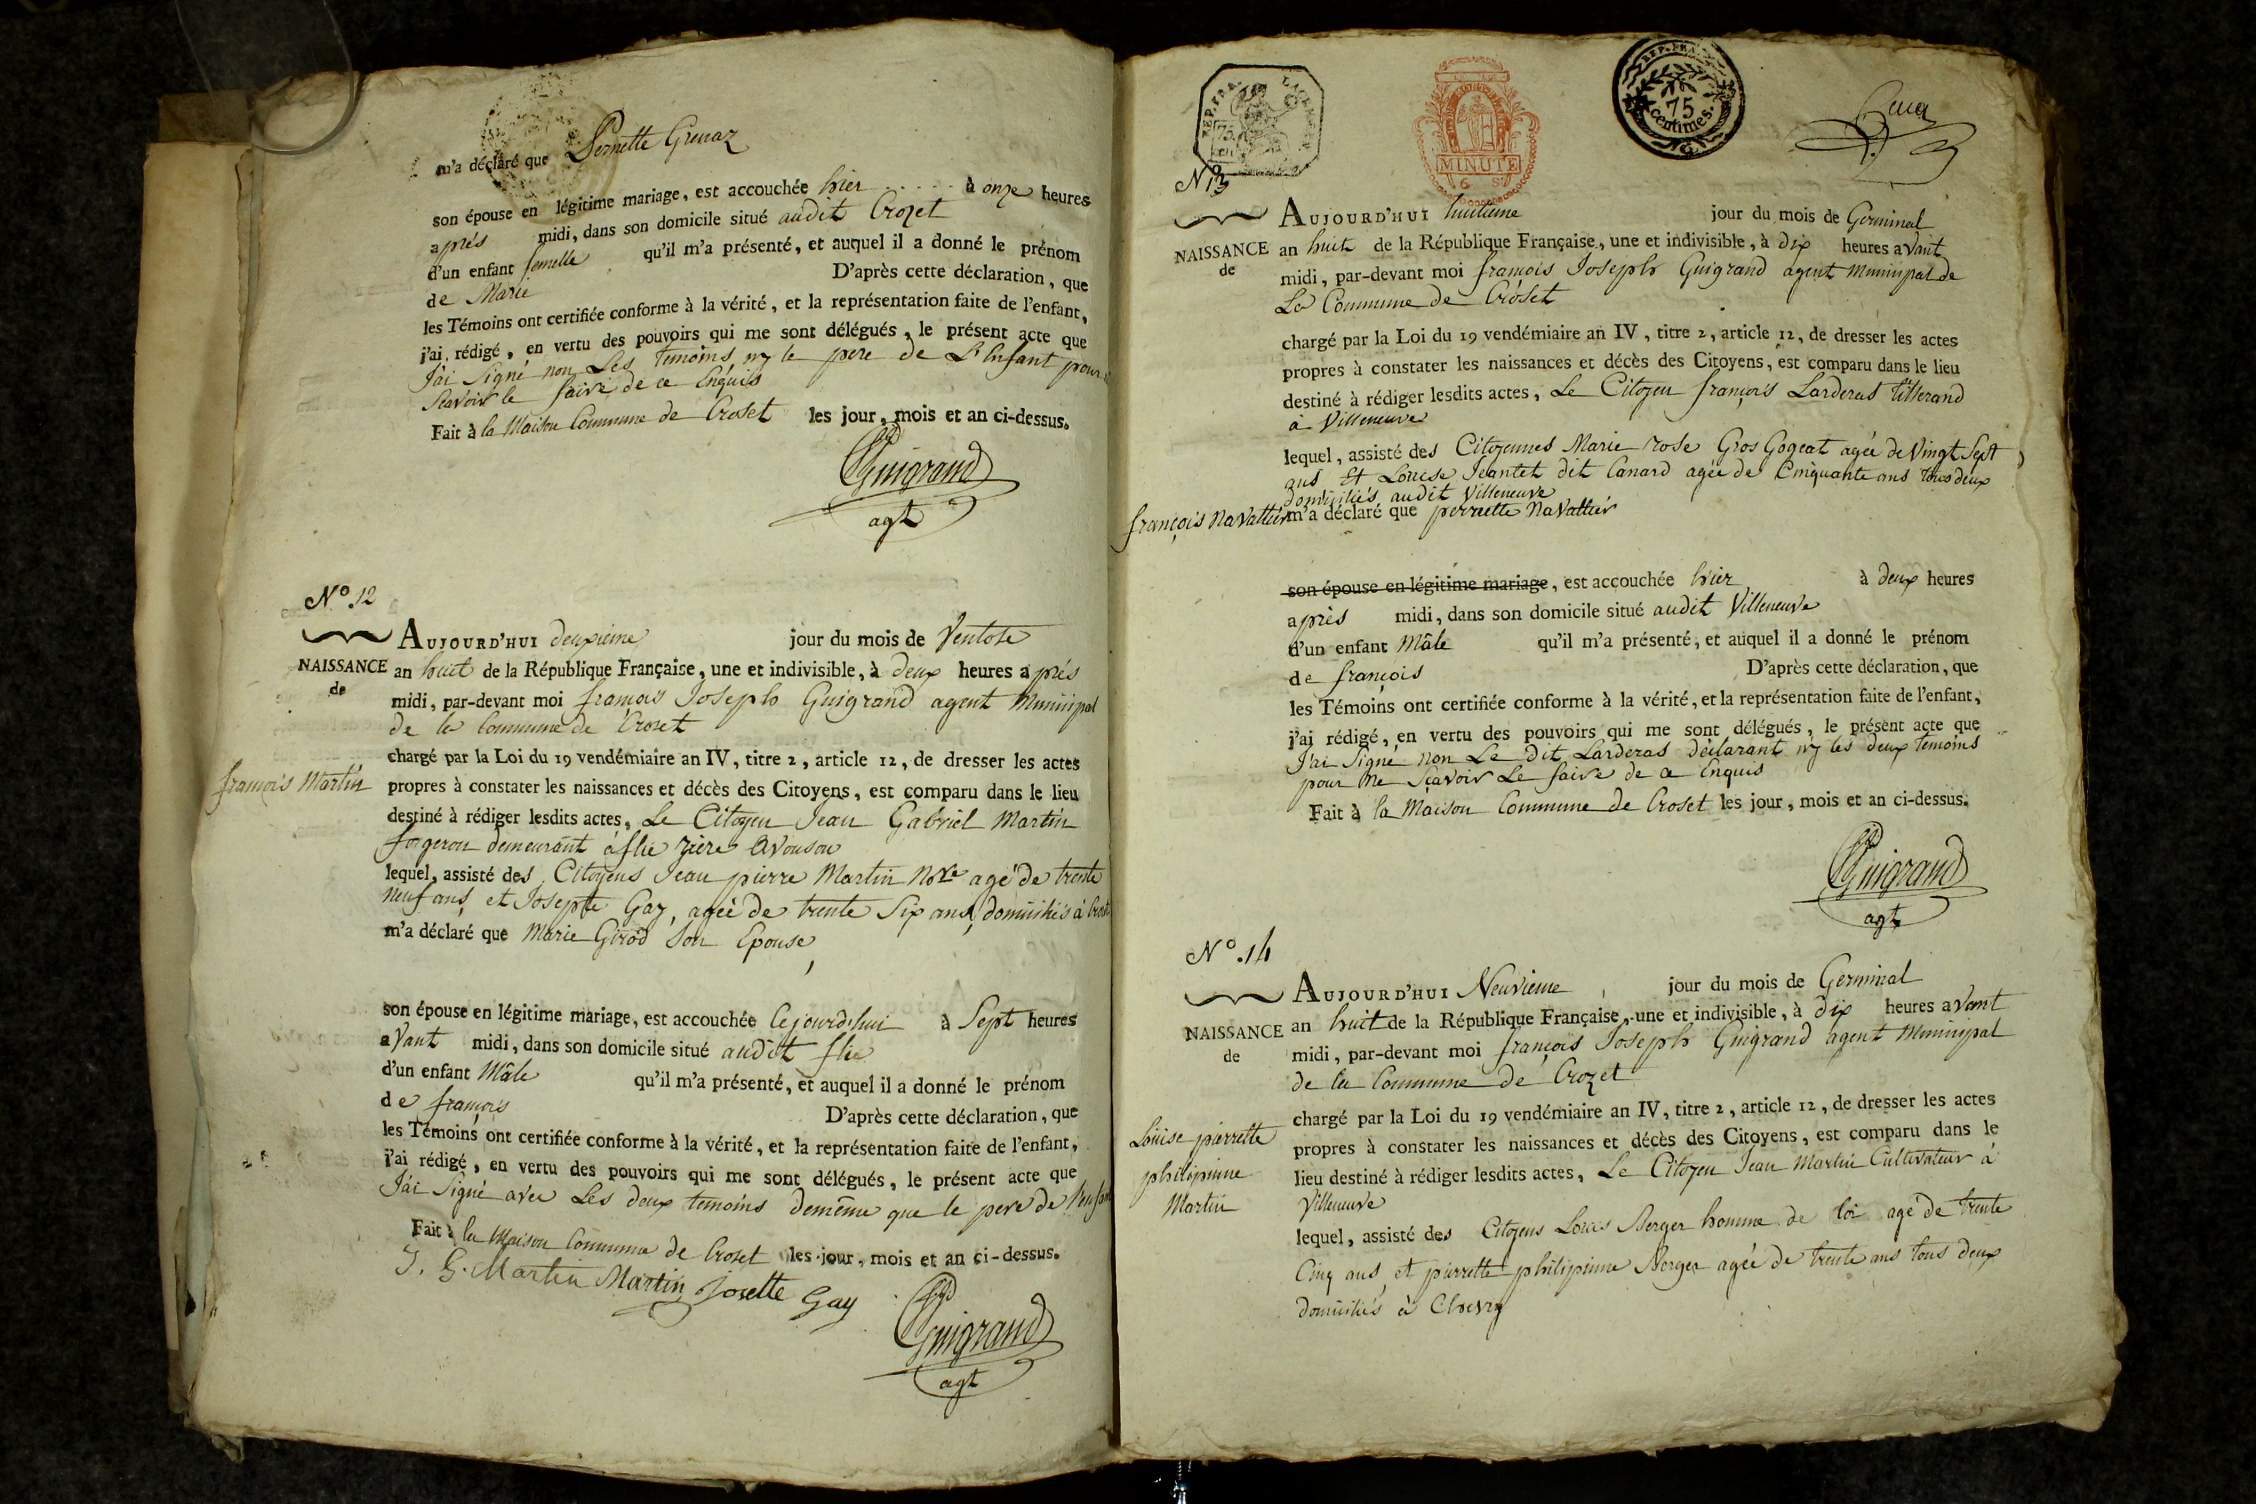 m'a déclaré que Pernette Grenaz
son épouse en légitime mariage, est accouchée hier ..... à onze heures
après midi, dans son domicile situé audit Crozet
d'un enfant femelle qu'il m'a présenté, et auquel il a donné le prénom
de Marie D'après cette déclaration, que
les Témoins ont certifiée conforme à la vérité, et la représentation faite de l'enfant,
j'ai rédigé, en vertu des pouvoirs qui me sont délégués, le présent acte que
J'ai Signé non Les temoins ny le pere de L'Enfant pour
Scavoir le faire de ce Enquis
Fait à la Maison Commune de Croset les jour, mois et an ci-dessus.
Guigrand
agt
N°. 12
AUJOURD'HUI deuxieme jour du mois de Ventose
NAISSANCE
de
an huit de la République Française, une et indivisible, à deux heures après
midi, par-devant moi francois Joseph Guigrand agent Municipal
de la Commune de Croset
chargé par la Loi du 19 vendémiaire an IV, titre 2, article 12, de dresser les actes
francois Martin
propres à constater les naissances et décès des Citoyens, est comparu dans le lieu
destiné à rédiger lesdits actes, Le Citoyen Jean Gabriel Martin
forgeron demeurant a flie
lequel, assisté des Citoyens Jean pierre Martin Nore agé de trente
neuf ans, et Josepte Gay, agée de trente Six ans, domiciliés à
m'a déclaré que Marie Girod Son Epouse,
son épouse en légitime mariage, est accouchée Cejourd'hui à Sept heures
avant midi, dans son domicile situé audit flie
d'un enfant Mâle qu'il m'a présenté, et auquel il a donné le prénom
de françois D'après cette déclaration, que
les Témoins ont certifiée conforme à la vérité, et la représentation faite de l'enfant,
j'ai rédigé, en vertu des pouvoirs qui me sont délégués, le présent acte que
J'ai Signé avec Les deux temoins demême que le pere de
Fait à la Maison Commune de Croset les jour, mois et an ci-dessus.
J. G. Martin Martin Josette Gay
Guigrand
agt
REP. FRA.
75
MINUTE
6 S
REP. FRA.
75
centimes.
N° 13
AUJOURD'HUI huitieme jour du mois de Germinal
NAISSANCE
de
an huit de la République Française, une et indivisible, à dix heures avant
midi, par-devant moi francois Joseph Guigrand agent Municipal de
La Commune de Croset
chargé par la Loi du 19 vendémiaire an IV, titre 2, article 12, de dresser les actes
propres à constater les naissances et décès des Citoyens, est comparu dans le lieu
destiné à rédiger lesdits actes, Le Citoyen françois Larderas tisserand
à Villeneuve
lequel, assisté des Citoyennes Marie rose Gros Gogeat agée de Vingt Sept
ans Et Louise Jeantet dit Canard agée de Cinquante ans tous deux
domiciliés audit Villeneuve
françois Navattier
m'a déclaré que perrette Navattier
son épouse en légitime mariage, est accouchée hier à deux heures
après midi, dans son domicile situé audit Villeneuve
d'un enfant Mâle qu'il m'a présenté, et auquel il a donné le prénom
de françois D'après cette déclaration, que
les Témoins ont certifiée conforme à la vérité, et la représentation faite de l'enfant,
j'ai rédigé, en vertu des pouvoirs qui me sont délégués, le présent acte que
J'ai Signé non Le dit Larderas déclarant ny les deux temoins
pour Ne Scavoir Le faire de ce Enquis
Fait à la Maison Commune de Croset les jour, mois et an ci-dessus.
Guigrand
agt
N°. 14
AUJOURD'HUI Neuvieme jour du mois de Germinal
NAISSANCE
de
an huit de la République Française, une et indivisible, à dix heures avant
midi, par-devant moi françois Joseph Guigrand agent Municipal
de la Commune de Crozet
chargé par la Loi du 19 vendémiaire an IV, titre 2, article 12, de dresser les actes
Louise pierrette
philipinne
Martin
propres à constater les naissances et décès des Citoyens, est comparu dans le
lieu destiné à rédiger lesdits actes, Le Citoyen Jean Martin Cultivateur à
Villeneuve
lequel, assisté des Citoyens Louis Nerger homme de loi agé de trente
Cinq ans et pierrette philipinne Nerger agée de trente ans tous deux
domiciliés à Chevry